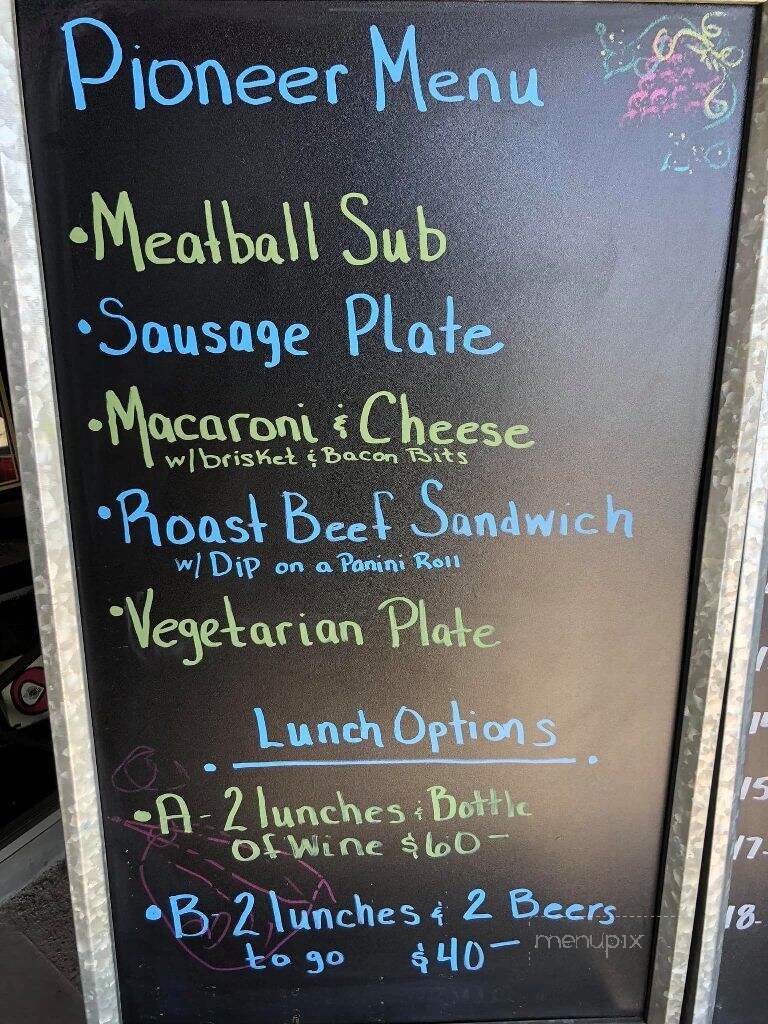 Pioneer Menu
•Meatball Sub
•Sausage Plate
•Macaroni & Cheese
w/brisket & Bacon Bits
•Roast Beef Sandwich
w/ Dip on a Panini Roll
•Vegetarian Plate
Lunch Options
•A-2 lunches & Bottle
Of Wine $60-
•B-2 lunches & 2 Beers
to go $40-
menupix
15
17-
18-